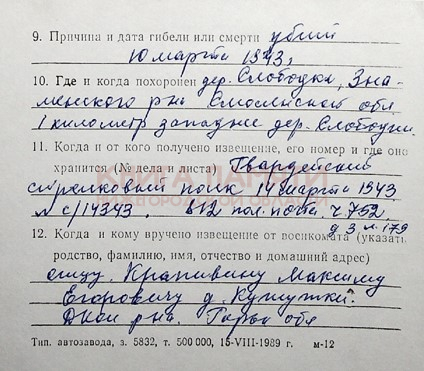 9. Причина и дата гибели или смерти убит
10 марта 1943г
10. Где и когда похоронен дер. Слободка, Зна-
менского р-на Смоленской обл
1 километр западнее дер. Слободки.
11. Когда и от кого получено извещение, его номер и где оно
хранится (№ дела и листа) Гвардейский
стрелковый полк 14 марта 1943
№ с/14343. 612 пол. почта. ч. 752
д 3 л. 179
12. Когда и кому вручено извещение от военкомата (указать
родство, фамилию, имя, отчество и домашний адрес)
отцу. Крапивину Максиму
Егоровичу д.
р-на. Горьк обл
Тип. автозавода, з. 5832, т. 500 000, 15-VIII-1989 г. м-12
КНИГА ПАМЯТИ
НИЖЕГОРОДСКОЙ ОБЛАСТИ